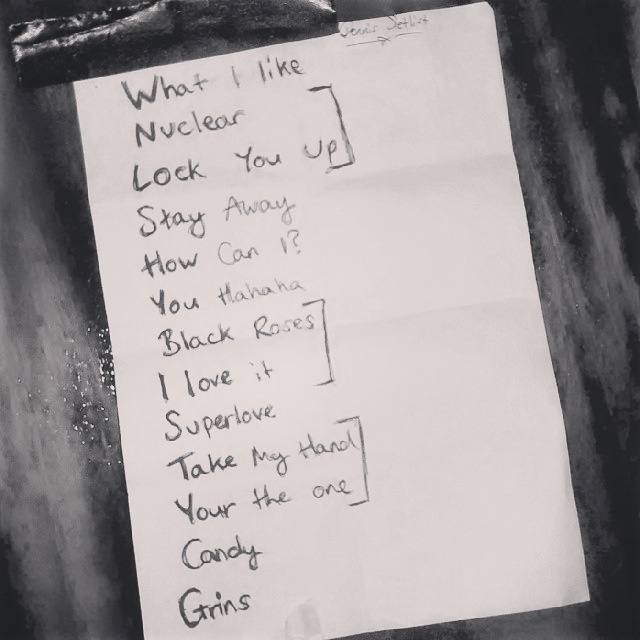 Setlist
What I like
Nuclear
Lock You Up
Stay Away
How Can I?
You Hahaha
Black Roses
I love it
Superlove
Take My Hand
Your the one
Candy
Grins